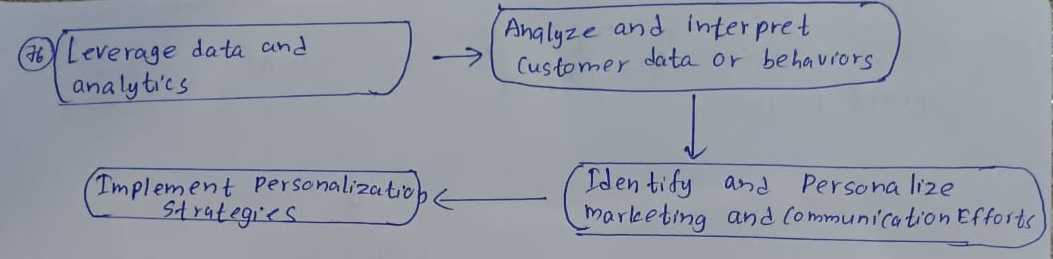 76 Leverage data and
analytics
Analyze and interpret
Customer data or behaviors
Identify and Personalize
marketing and Communication Efforts
Implement Personalization
Strategies